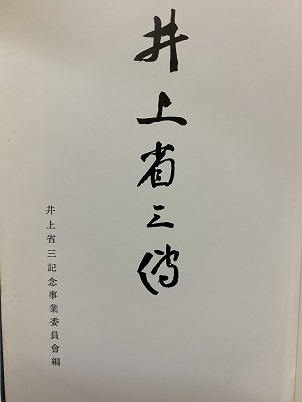 井上省三傳
井上省三記念事業委員會編